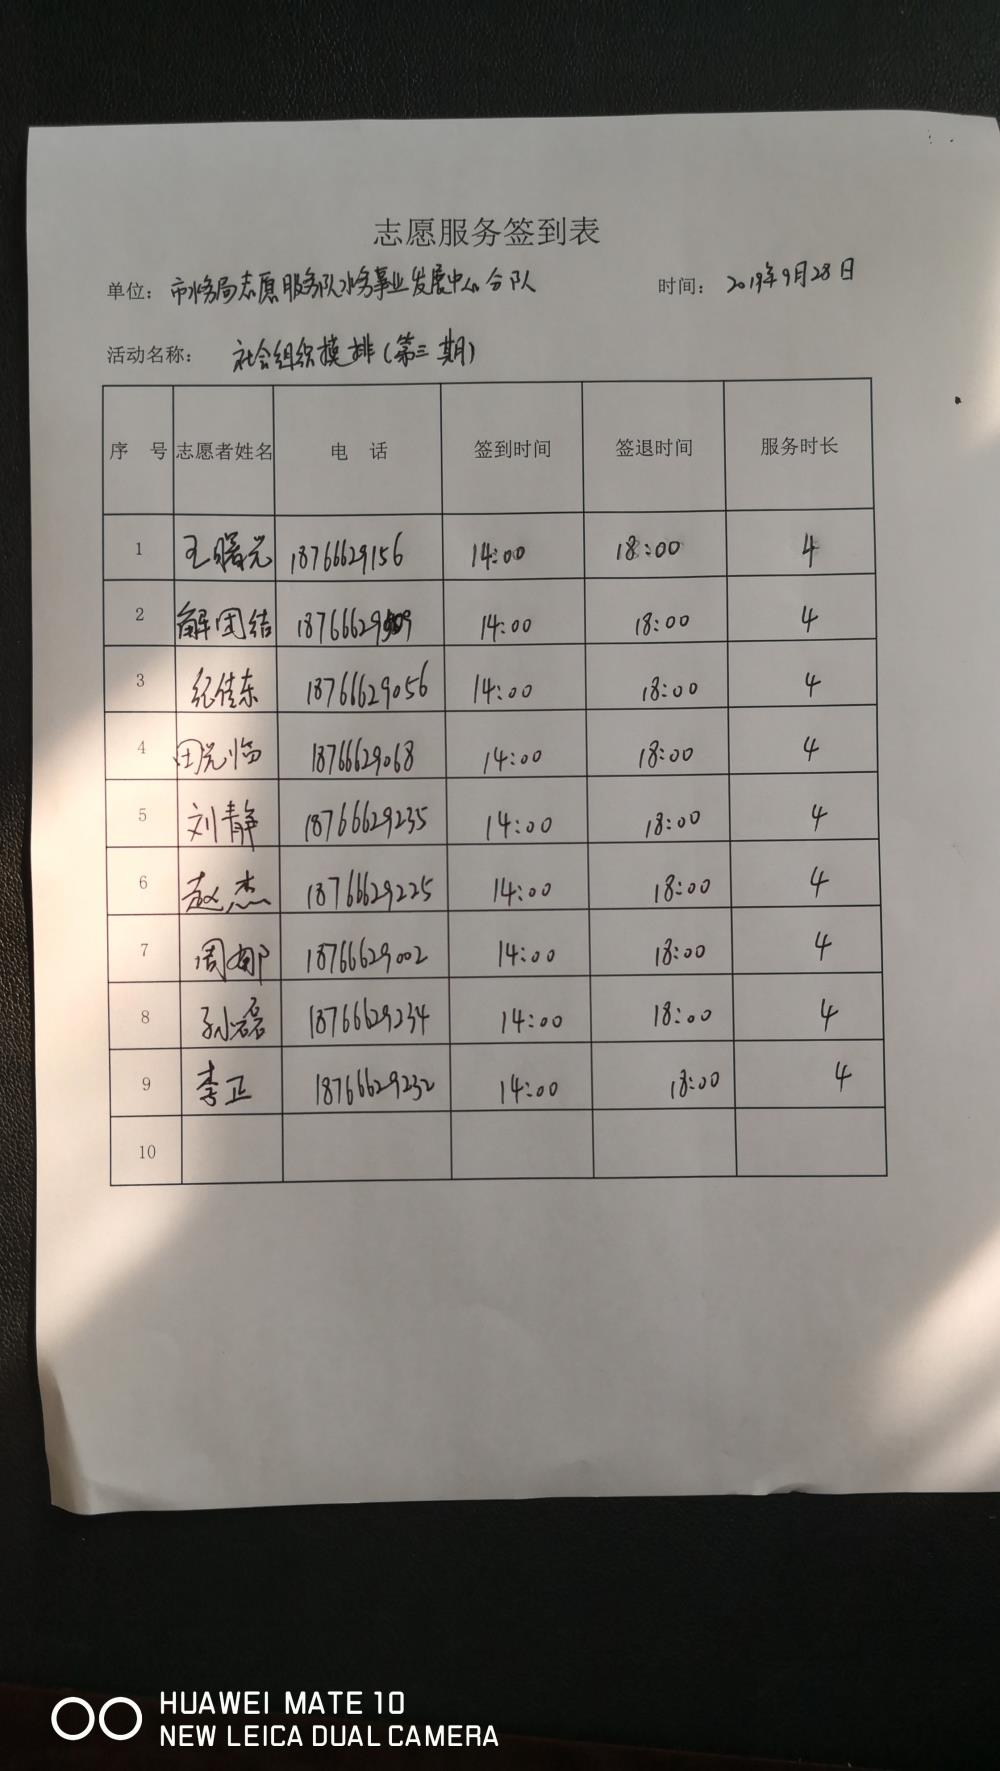 志愿服务签到表
单位: 市水务局志愿服务队水务事业发展中心分队 时间: 2019年9月28日
活动名称: 社会组织摸排(第三期)
序号 志愿者姓名 电话 签到时间 签退时间 服务时长
1 王曙光 18766629156 14:00 18:00 4
2 解团结 14:00 18:00 4
3 纪佳东 18766629056 14:00 18:00 4
4 田光临 18766629068 14:00 18:00 4
5 刘静 18766629235 14:00 18:00 4
6 赵杰 18766629225 14:00 18:00 4
7 周郁 18766629002 14:00 18:00 4
8 孙磊 18766629234 14:00 18:00 4
9 李正 18766629232 14:00 18:00 4
10
HUAWEI MATE 10
NEW LEICA DUAL CAMERA